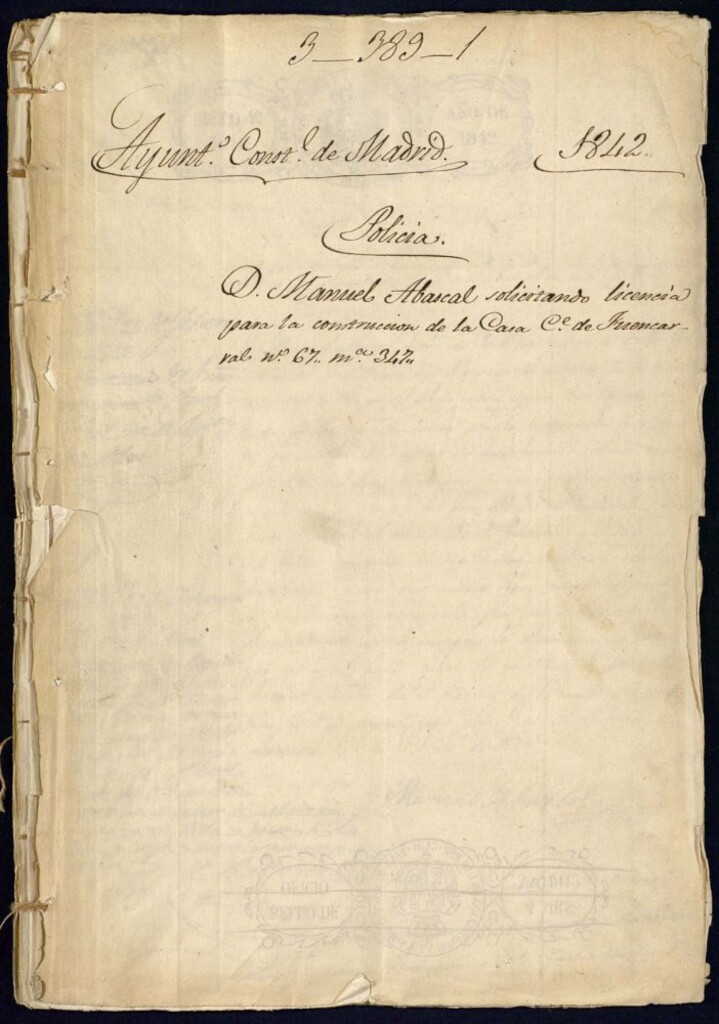 3–389–1
Ayunt.º Const.l de Madrid. 1842.
Policia.
D. Manuel Abascal solicitando licencia
para la construccion de la Casa C.e de Fuencar-
ral n.º 67. m.a 347.